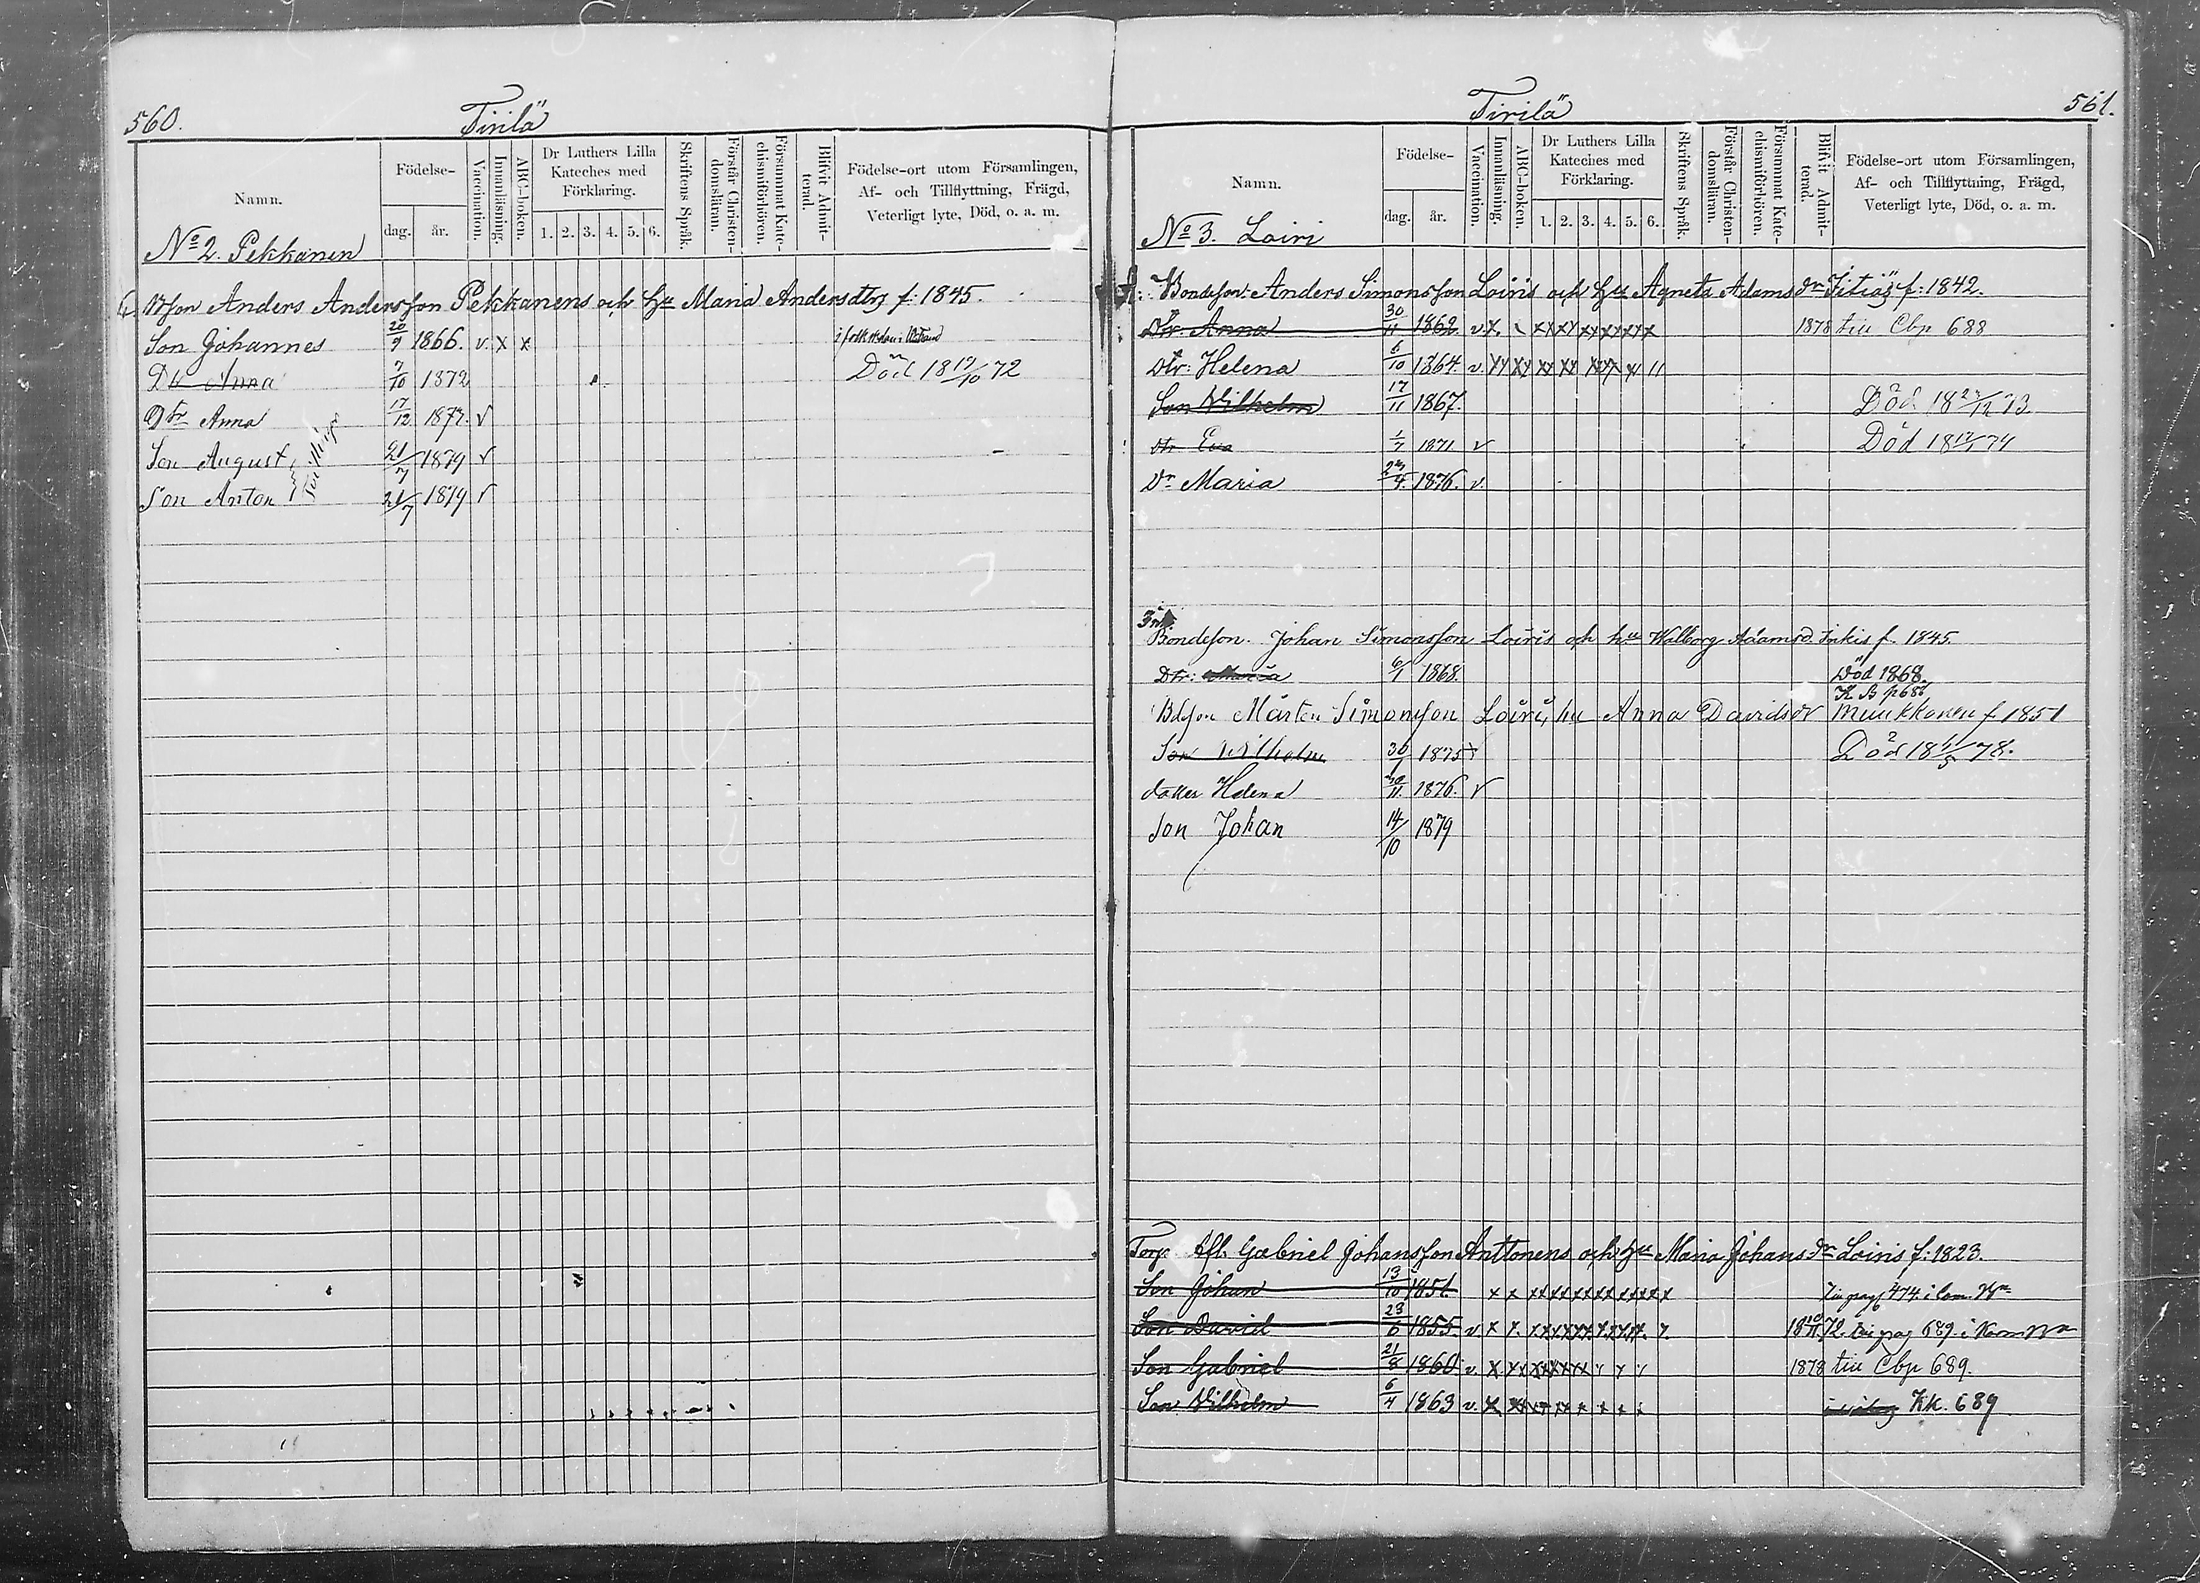 560.
Tirilä
Namn.
Födelse-
dag.
år.
Vaccination.
Innanläsning.
ABC-boken.
Dr Luthers Lilla
Kateches med
Förklaring.
1. 2. 3. 4. 5. 6.
Skriftens Språk.
Förstår Christen-
domsläran.
Försummat Kate-
chismiförhören.
Blifvit Admit-
terad.
Födelse-ort utom Församlingen,
Af- och Tillflyttning, Frägd,
Veterligt lyte, Död, o. a. m.
No 2. Pekkanen
Anders Andersson Pekkanens och hu Maria Andersdtrs f. 1845.
Son Johannes 20/9 1866. v. x x
Dtr Anna 7/10 1872 Död 18 17/10 72
Dtr Anna 17/12 1872. v
Son August 21/7 1879 v
Son Anton 21/7 1879 v
561.
Tirilä
Namn.
Födelse-
dag.
år.
Vaccination.
Innanläsning.
ABC-boken.
Dr Luthers Lilla
Kateches med
Förklaring.
1. 2. 3. 4. 5. 6.
Skriftens Språk.
Förstår Christen-
domsläran.
Försummat Kate-
chismiförhören.
Blifvit Admit-
terad.
Födelse-ort utom Församlingen,
Af- och Tillflyttning, Frägd,
Veterligt lyte, Död, o. a. m.
No 3. Loiri
Bondeson Anders Simonsson Loiris och hu Agneta Adams dr f. 1842.
Dtr. Anna 30/11 1862 v. 1878 till Cbp 688
Dtr: Helena 6/10 1864. v.
Son Vilhelm 17/11 1867. Död 18 27/12 73
dtr Eva 1/7 1871. v Död 18 74
Dr Maria 1876. v.
Bondeson. Johan Simonsson Loiris och hu Walborg Adamsd. Inkis f. 1845.
Dtr: Maria 6/1 1868. Död 1868.
Mårten Simonson Loiri, hu Anna Davidsdr Muukkonen f 1851
Son Vilhelm 1875 Död 18 78.
dotter Helena 1876. v
Son Johan 14/10 1879
Torp. Afl. Gabriel Johansson Anttonens och hu Maria Johans dr Loiris f. 1823.
Son Johan 13/10 1851.
Son David 23/6 1855. v. 72. 689.
Son Gabriel 21/8 1860. v. 1878 till Cbp 689.
Son Vilhelm 6/4 1863 v. Kk. 689